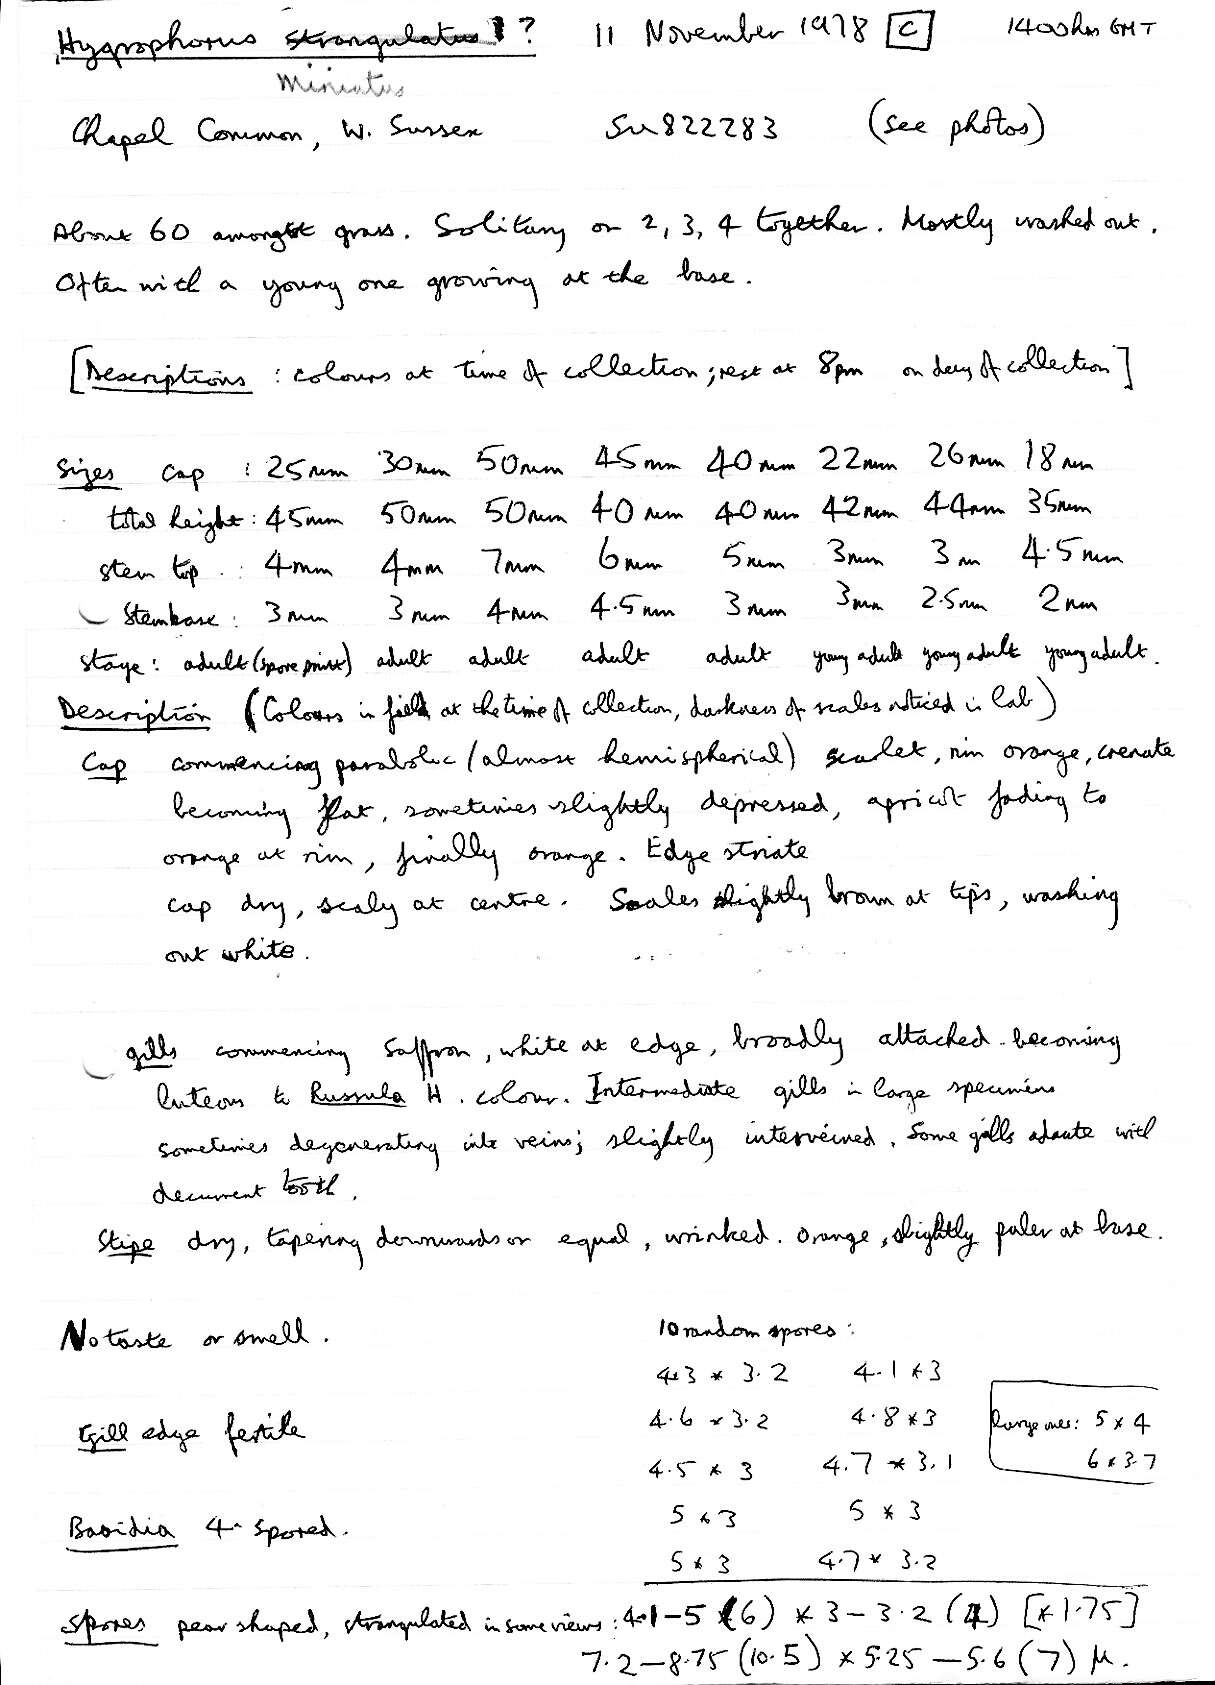 Hygrophorus strangulatus ? 11 November 1978 [C] 1400hrs GMT
Miniatus
Chapel Common, W. Sussex SU822283 (see photos)
About 60 amongst grass. Solitary or 2, 3, 4 together. Mostly washed out.
Often with a young one growing at the base.
[Descriptions : colours at time of collection; rest at 8pm on day of collection]
Sizes cap : 25mm 30mm 50mm 45mm 40mm 22mm 26mm 18mm
total height : 45mm 50mm 50mm 40mm 40mm 42mm 44mm 35mm
stem top : 4mm 4mm 7mm 6mm 5mm 3mm 3m 4.5mm
Stembase : 3mm 3mm 4mm 4.5mm 3mm 3mm 2.5mm 2mm
stage : adult (spore print) adult adult adult adult young adult young adult young adult.
Description (Colours in field at the time of collection, darkness of scales noticed in lab)
Cap commencing parabolic (almost hemispherical) scarlet, rim orange, crenate
becoming flat, sometimes slightly depressed, apricot fading to
orange at rim, finally orange. Edge striate
cap dry, scaly at centre. Scales slightly brown at tips, washing
out white.
gills commencing saffron, white at edge, broadly attached. becoming
luteous to Russula H. colour. Intermediate gills in large specimens
sometimes degenerating into veins; slightly interveined. Some gills adnate with
decurrent tooth.
Stipe dry, tapering downwards or equal, wrinked. Orange, slightly paler at base.
No taste or smell. 10 random spores :
4.3 * 3.2 4.1 * 3
4.6 * 3.2 4.8 * 3 large ones: 5 * 4
Gill edge fertile
4.5 * 3 4.7 * 3.1 6 * 3.7
5 * 3 5 * 3
Basidia 4-spored.
5 * 3 4.7 * 3.2
Spores pear shaped, strangulated in some views : 4.1-5 (6) * 3-3.2 (4) [*1.75]
7.2-8.75 (10.5) * 5.25-5.6 (7) μ.